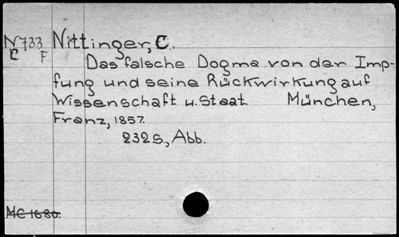 N733 Nittinger, C.
C F
Das falsche Dogma von der Imp-
fung und seine Rückwirkung auf
Wissenschaft u. Staat. München,
Franz, 1857.
232 S., Abb.
MC 1680.